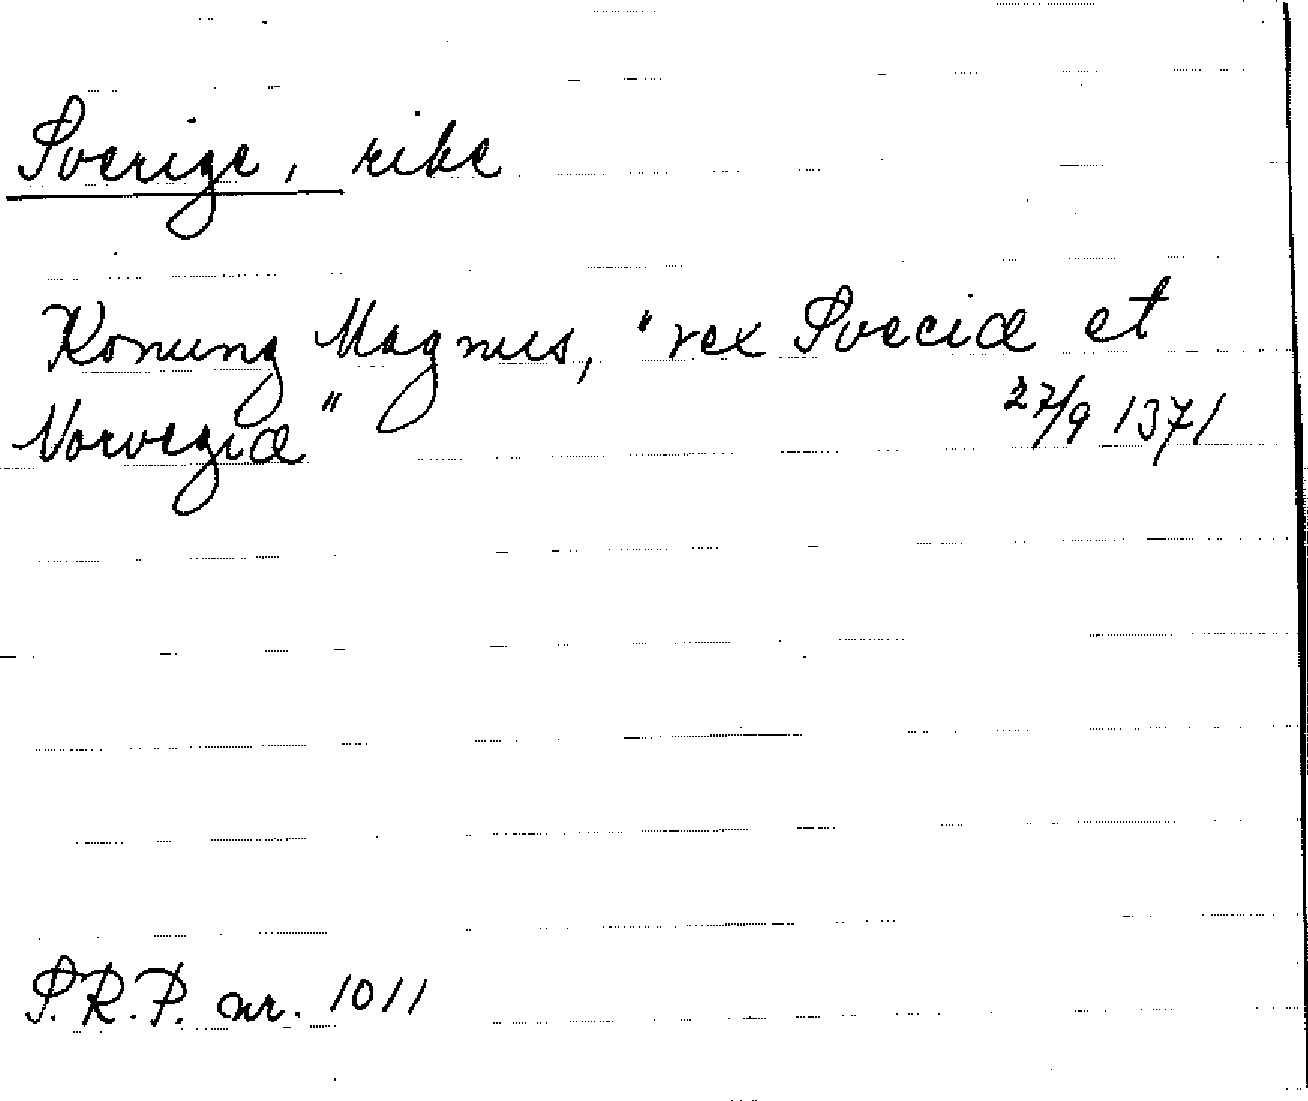 Sverige, rike
Konung Magnus, "rex Sveciæ et
Norvegiæ" 27/9 1371
S.R.P. nr. 1011